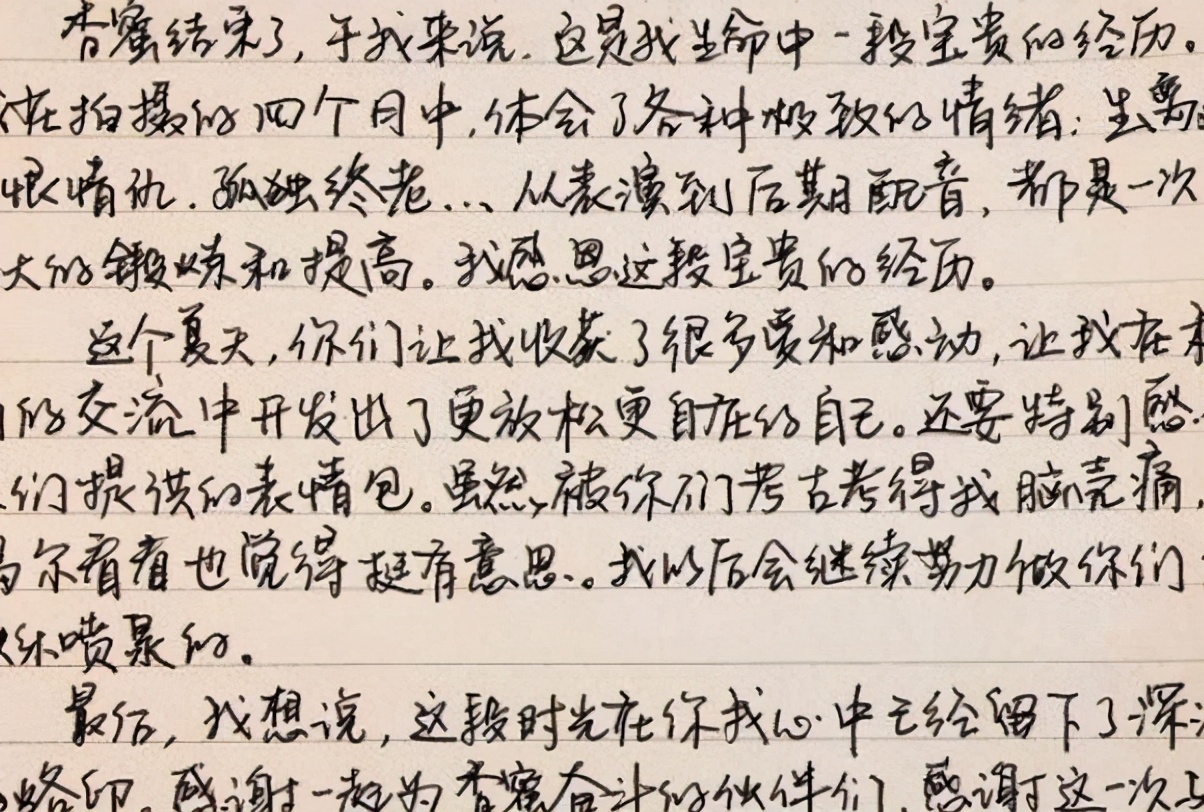 香蜜结束了，于我来说，这是我生命中一段宝贵的经历。
在拍摄的四个月中，体会了各种极致的情绪：生离
恨情仇、孤独终老…、从表演到后期配音，都是一次
大的锻炼和提高。我感恩这段宝贵的经历。
这个夏天，你们让我收获了很多爱和感动，让我在
的交流中开发出了更放松更自在的自己。还要特别感
们提供的表情包。虽然，被你们考古考得我脑壳痛，
尔看看也觉得挺有意思。我以后会继续努力做你们
乐喷泉的。
最后，我想说，这段时光在你我心中已经留下了深
烙印。感谢一起为香蜜奋斗的伙伴们，感谢这一次